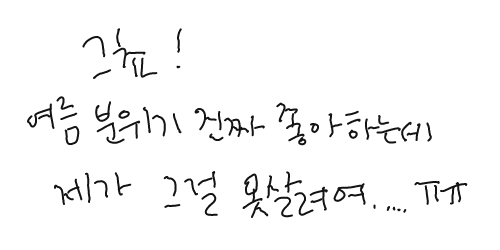 그쵸!
여름 분위기 진짜 좋아하는데
제가 그걸 못살려여.... ㅠㅠ